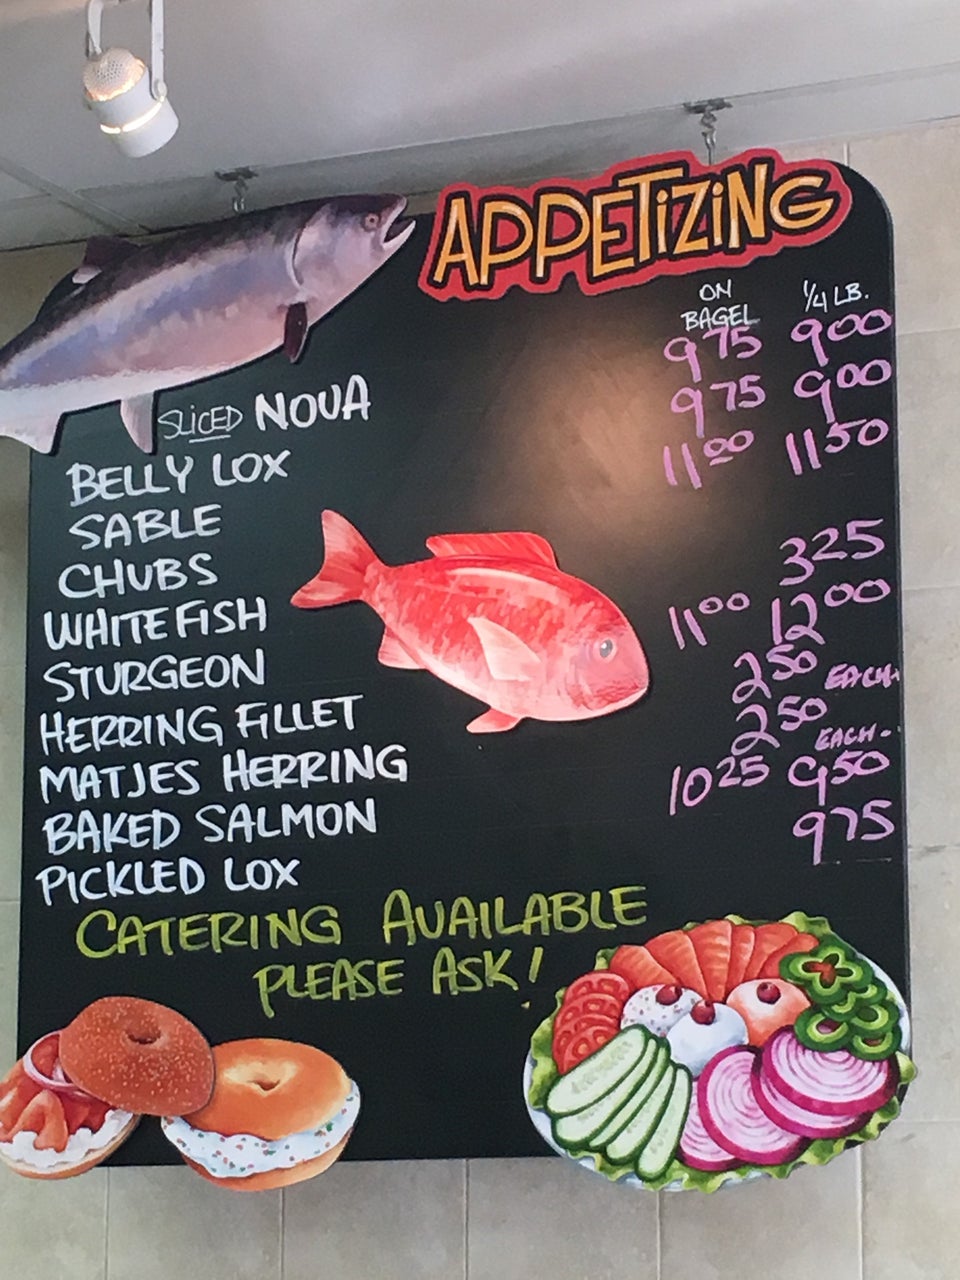 APPETIZING
ON BAGEL 1/4 LB.
SLICED NOVA 9 75 9 00
BELLY LOX 9 75 9 00
SABLE 11 00 11 50
CHUBS
WHITEFISH 3 25
STURGEON 11 00 12 00
HERRING FILLET 2 50 EACH.
MATJES HERRING 2 50 EACH.
BAKED SALMON 10 25 9 50
PICKLED LOX 9 75
CATERING AVAILABLE
PLEASE ASK!